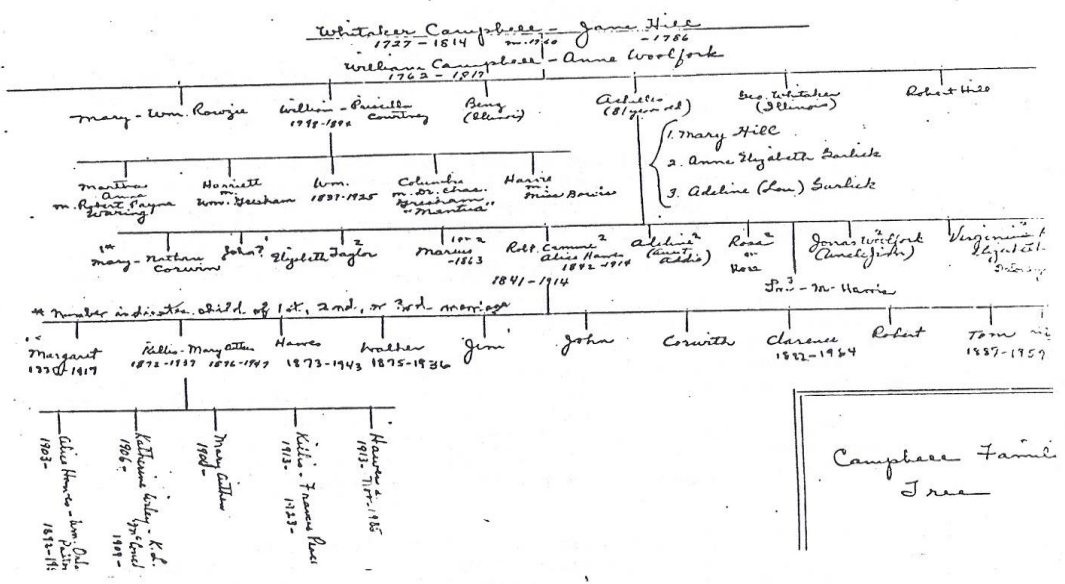 Whitaker Campbell - Jane Hill
1727-1814 m. 1760 -1786
William Campbell - Anne Woolfork
1762-1817
Mary - Wm. Rowzie
William - Priscilla Courtney
1798-
Benj
(Illinois)
Achilles
(81 years old)
Geo. Whitaker
(Illinois)
Robert Hill
1. Mary Hill
2. Anne Elizabeth Garlick
3. Adeline (Lou) Garlick
Martha
Anna
m. Robert Payne
Waring
Harriett
m.
Wm. Gresham
Wm.
1837-1925
Columbia
m. Dr. Chas.
Gresham
"Mantua"
Harrie
m.
Miss
1*
Mary - Nathan
Corwin
John?
Elizabeth Taylor 2
Marius 1 or 2
-1863
Robt. 2
Alice Hawes
1842-1914
1841-1914
Adeline 2
(Aunt
Addie)
Rosa 2
or
Rose
3 - m - Harris
Jonas Woolfork 2
(Uncle Jim)
Virginius
Elizabeth
* Number indicates child of 1st, 2nd, or 3rd marriage
Margaret
-1917
Killis - Mary Aithes
1872-1937 1876-1947
Hawes
1873-1943
Walker
1875-1936
Jim
John
Corwith
Clarence
1882-1954
Robert
Tom
1887-1959
Alice Hawes - Wm.
1903-
Katherine - K.L.
1906- 1909-
Mary Aithes
1908-
Killis - Frances
1913- 1923-
Hawes
1913- Nov. 1985
Campbell
Tree